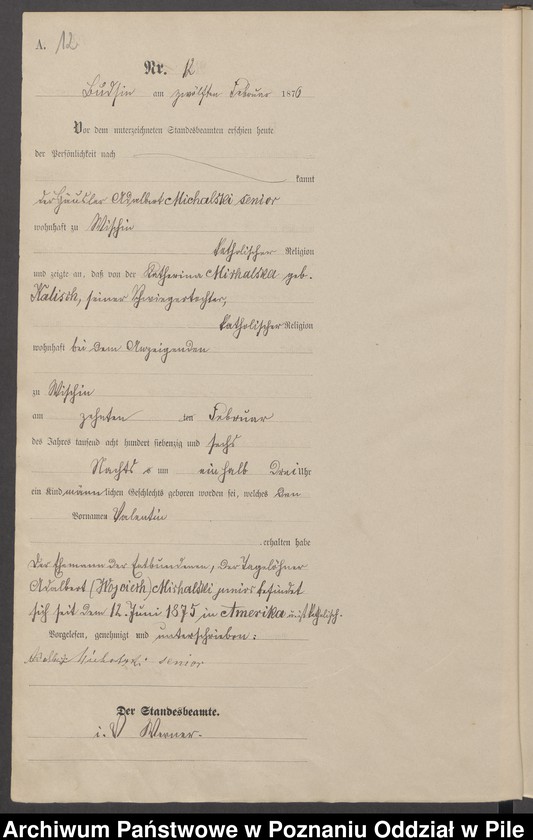 A. 12
Nr. 12
Budsin am zwölften Februar 1876
Vor dem unterzeichneten Standesbeamten erschien heute
der Persönlichkeit nach
kannt
der Häusler Adalbert Michalski senior
wohnhaft zu Wischin
katholischer Religion
und zeigte an, daß von der Katherina Michalska geb.
Kalisch, seiner Schwiegertochter,
katholischer Religion
wohnhaft bei dem Anzeigenden
zu Wischin
am zehnten ten Februar
des Jahres tausend acht hundert siebenzig und sechs
Nachts um einhalb drei Uhr
ein Kind männlichen Geschlechts geboren worden sei, welches den
Vornamen Valentin
erhalten habe
Der Ehemann der Entbundenen, der Tagelöhner
Adalbert (Wojciech) Michalski junior befindet
sich seit dem 12. Juni 1875 in Amerika u. ist katholisch.
Vorgelesen, genehmigt und unterschrieben:
senior
Der Standesbeamte.
i. V Werner.
Archiwum Państwowe w Poznaniu Oddział w Pile